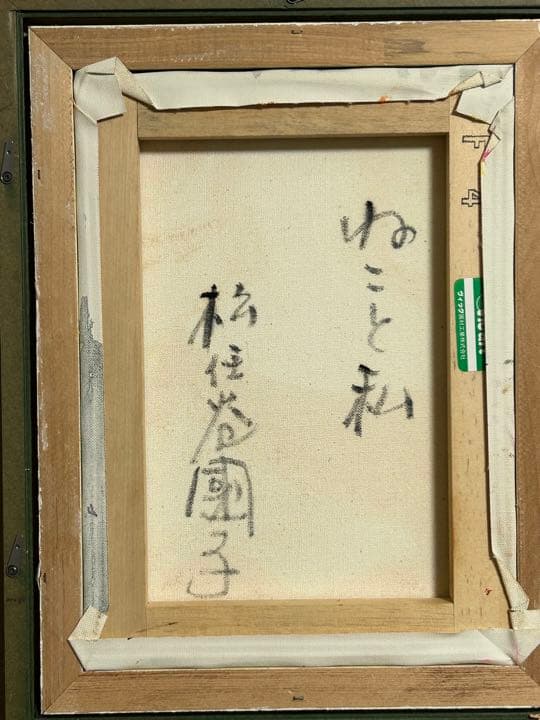 ねこと私
松任谷國子
F 4